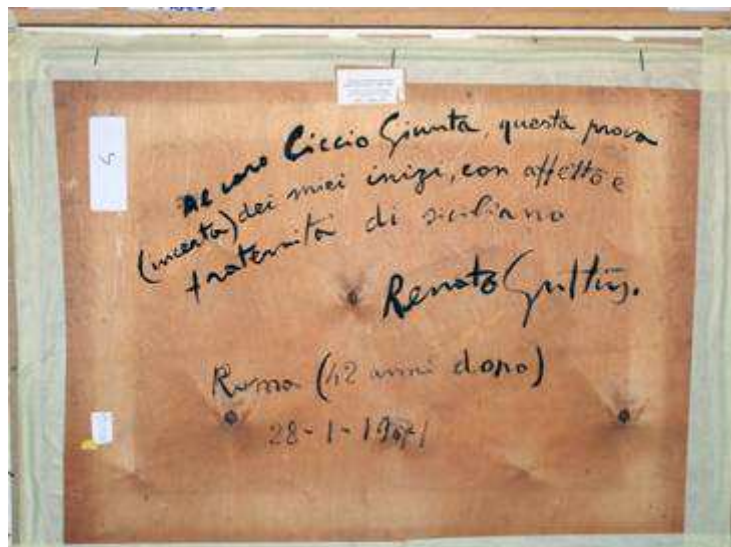 Al caro Ciccio Giunta, questa prova
(incerta) dei miei inizi, con affetto e
fraternità di siciliano
Renato Guttuso.
Roma (42 anni dopo)
28-1-
5